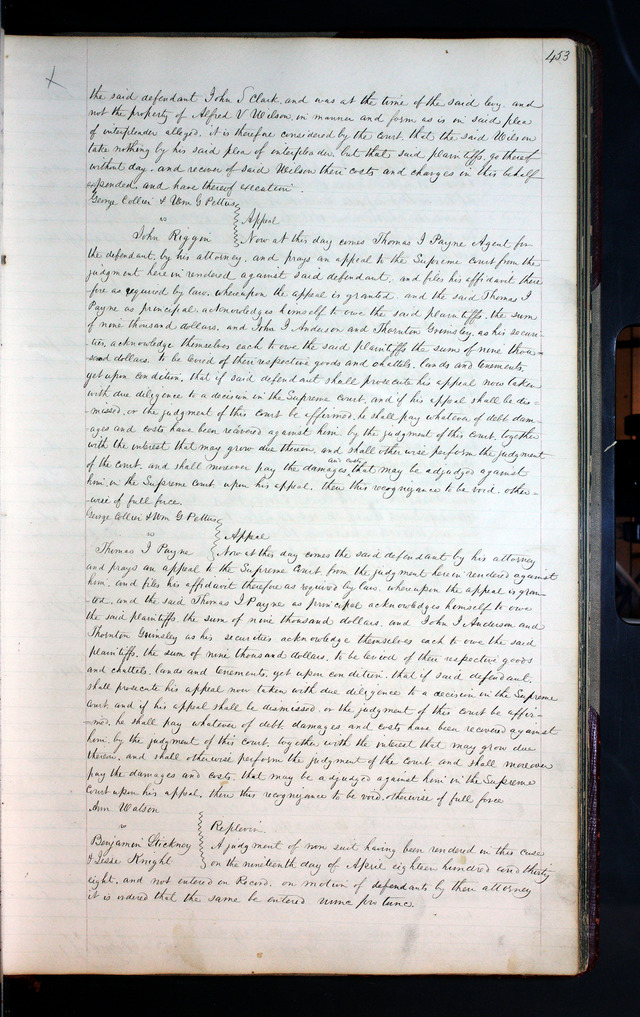 453
the said defendant John S Clark, and was at the time of the said levy, and
not the property of Alfred V Wilson, in manner and form as is in said plea
of interpleader alleged, it is therefore considered by the court, that the said Wilson
take nothing by his said plea of interpleader, but that said plaintiffs, go thereof
without day, and recover of said Wilson their costs and charges in this behalf
expended, and have thereof execution.
George Collier & Wm G Pettus
vs
Appeal
John Riggin
Now at this day comes Thomas I Payne Agent for
the defendant, by his attorney, and prays an appeal to the Supreme court from the
judgment herein rendered against said defendant, and files his affidavit there
fore as required by law, whereupon the appeal is granted, and the said Thomas I
Payne as principal, acknowledges himself to owe the said plaintiffs, the sum
of nine thousand dollars, and John I Anderson and Thornton Grimsley, as his securi-
ties, acknowledge themselves each to owe the said plaintiffs the sums of nine thou-
sand dollars, to be levied of their respective goods and chattels, lands and tenements,
yet upon condition, that if said defendant shall prosecute his appeal now taken
with due diligence to a decision in the Supreme Court, and if his appeal shall be dis-
missed, or the judgment of this court be affirmed, he shall pay whatever of debt dam-
ages and costs have been recovered against him, by the judgment of this court, together
with the interest that may grow due thereon, and shall otherwise perform the judgment
of the court, and shall moreover pay the damages, and costs, that may be adjudged against
him, in the Supreme Court, upon his appeal, then this recognizance to be void, other-
-wise of full force.
George Collier & Wm G Pettus
vs
Appeal
Thomas I Payne
Now at this day comes the said defendant by his attorney
and prays an appeal to the Supreme Court from the judgment herein rendered against
him, and files his affidavit therefore as required by law, whereupon the appeal is gran-
ted, and the said Thomas I Payne as principal acknowledges himself to owe
the said plaintiffs, the sum of nine thousand dollars, and John I Anderson and
Thornton Grimsley as his securities acknowledge themselves each to owe the said
plaintiffs, the sum of nine thousand dollars, to be levied of their respective goods
and chattels, lands and tenements, yet upon condition, that if said defendant,
shall prosecute his appeal now taken with due diligence to a decision in the Supreme
Court, and if his appeal shall be dismissed, or the judgment of this court be affir-
-med, he shall pay whatever of debt, damages and costs have been recovered against
him, by the judgment of this court, together with the interest that may grow due
thereon, and shall otherwise perform the judgment of the court and shall moreover
pay the damages and costs, that may be adjudged against him in the Supreme
Court upon his appeal, then this recognizance to be void, otherwise of full force
Ann Watson
vs
Replevin.
Benjamin Stickney
& Jesse Knight
A judgment of non suit having been rendered in this case
on the nineteenth day of April eighteen hundred and thirty
eight, and not entered on Record, on motion of defendants by their attorney
it is ordered that the same be entered nunc pro tunc.